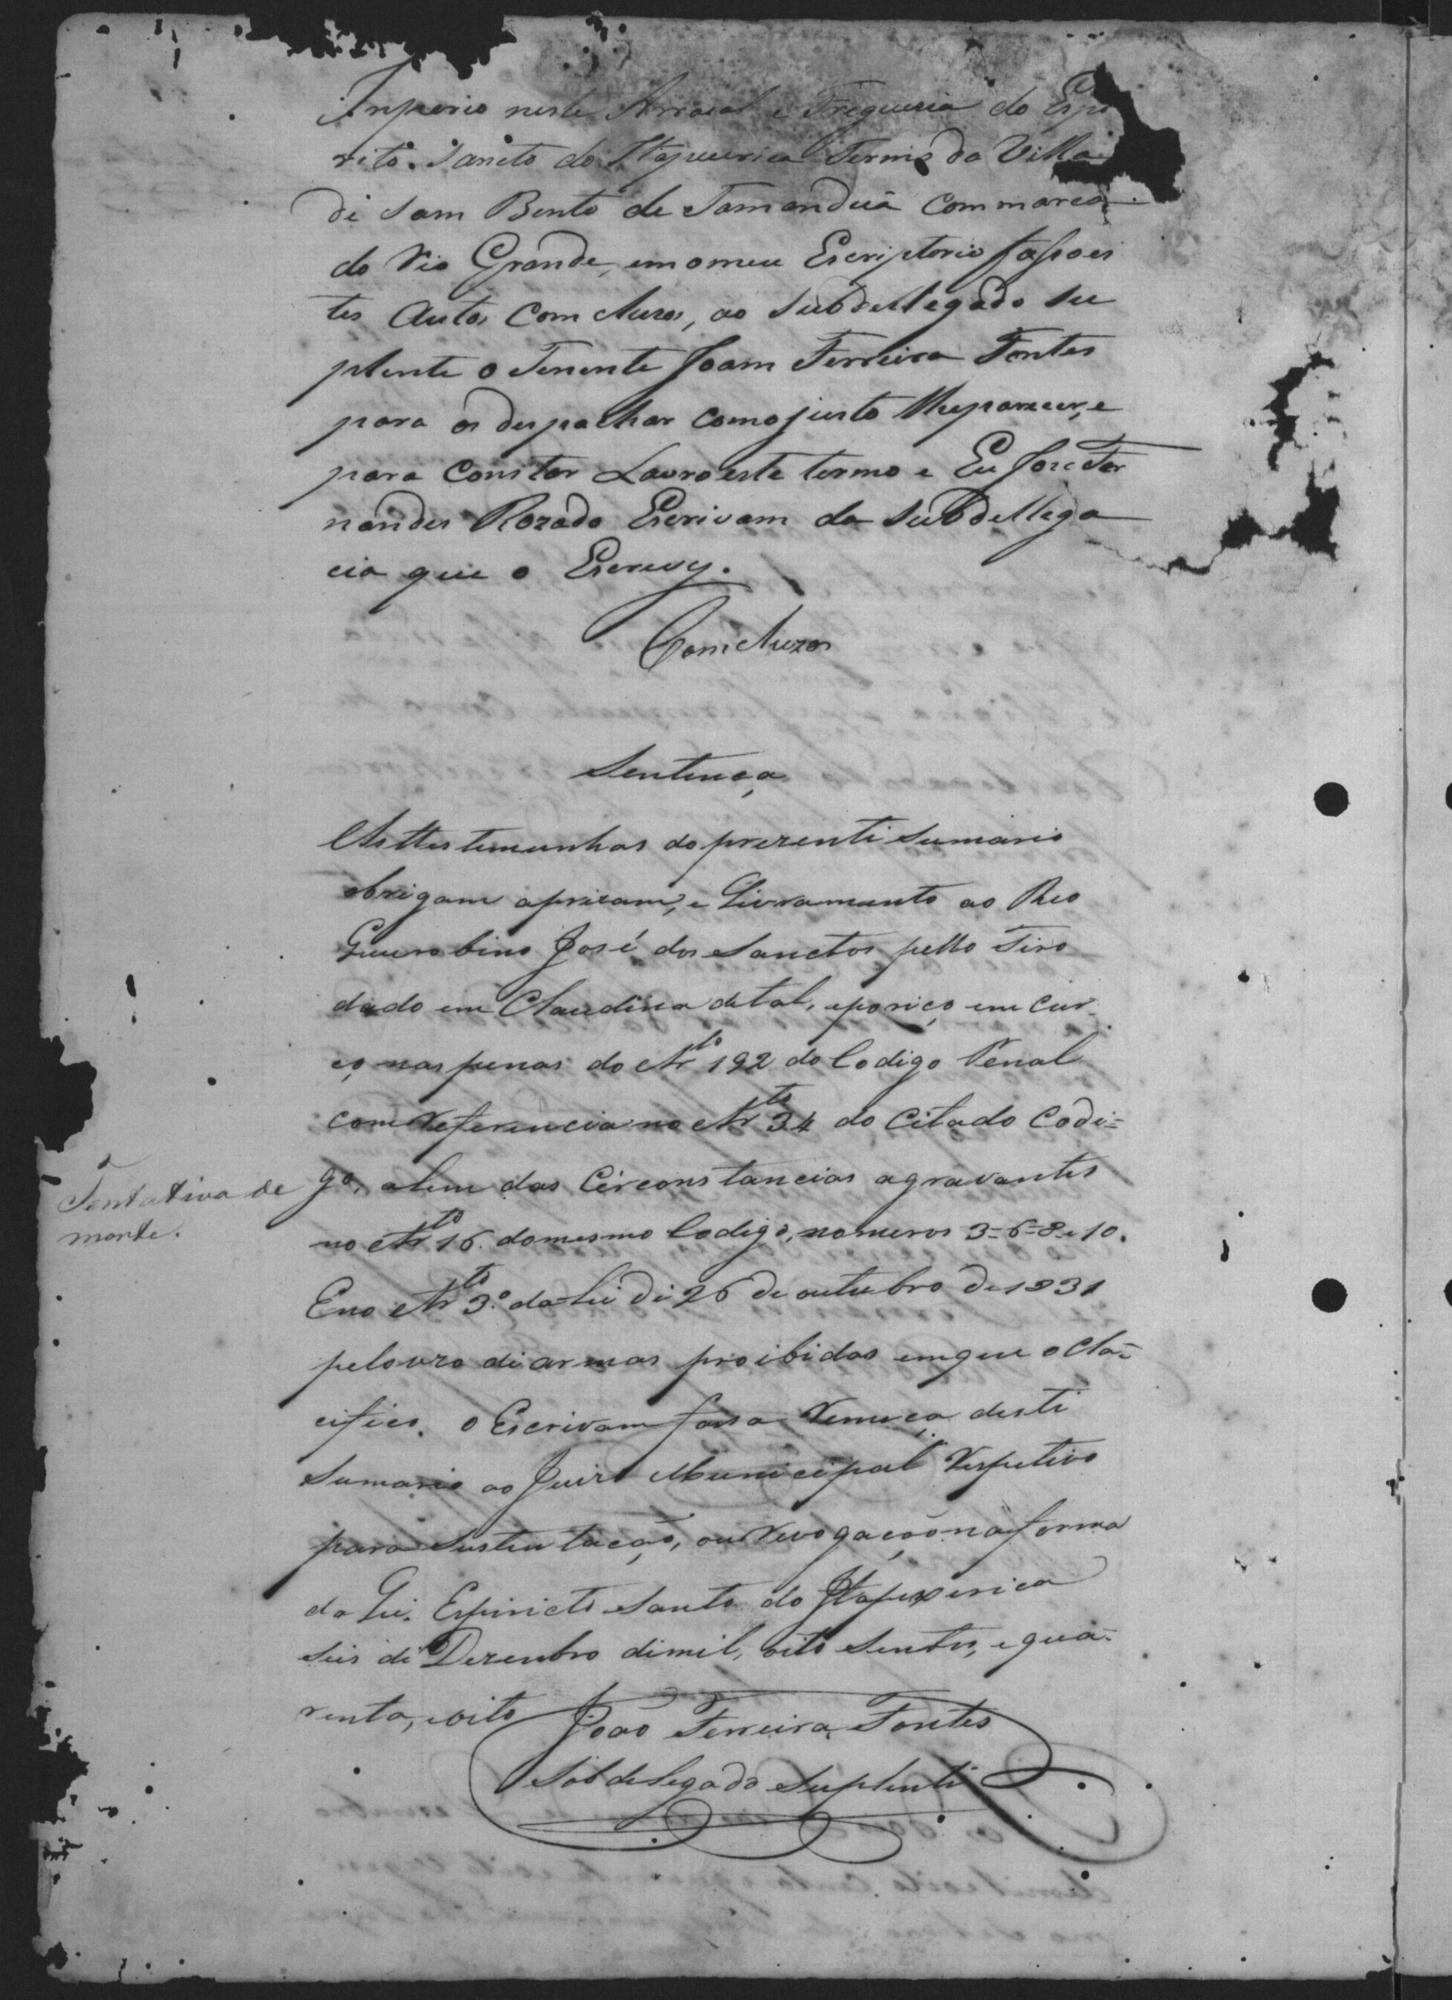 Inperio neste Arraial e Freguezia do Espi
rito Sancto do Itapecerica Termo da Villa
de Sam Bento de Tamanduá Commarca
do Rio Grande, em o meu Escriptorio fasso es
tes Autos Comcluzos, ao Subdellegado Su
plente o Tenente Joam Ferreira Fontes
para os despachar como justo lhe parecer, e
para constar Lavro este termo e Eu José Fer
nandes Rozado Escrivam da Subdellega
cia que o Escrevy.
Comcluzos
Sentença
As ttestemunhas do prezente Sumario
obrigam a prizam, e Livramento ao Reo
José dos Sanctos pello Tiro
dado em Claudina de tal, e por iço em cur
ço nas penas do Arto 192 do Codigo Penal
com referencia no Arto 34 do Citado Codi=
go, alem das Circonstancias agravantes
Tentativa de
morte.
no Arto 16 do mesmo Codigo, nomeros 3-6-8 e 10.
E no Arto 3.º da Lei de 26 de outubro de 1831
pelo uzo de armas proibidas em que o Cla=
cifico. O Escrivam fassa Remeça deste
Sumario ao Juizo Municipal Respetivo
para Sustentação, ou Revogação na forma
da Lei. Espiricto Santo do Itapexerica
seis de Dezenbro de mil, oito sentos, e qua-
renta, e oito
João Ferreira Fontes
Sobdelegado Suplente